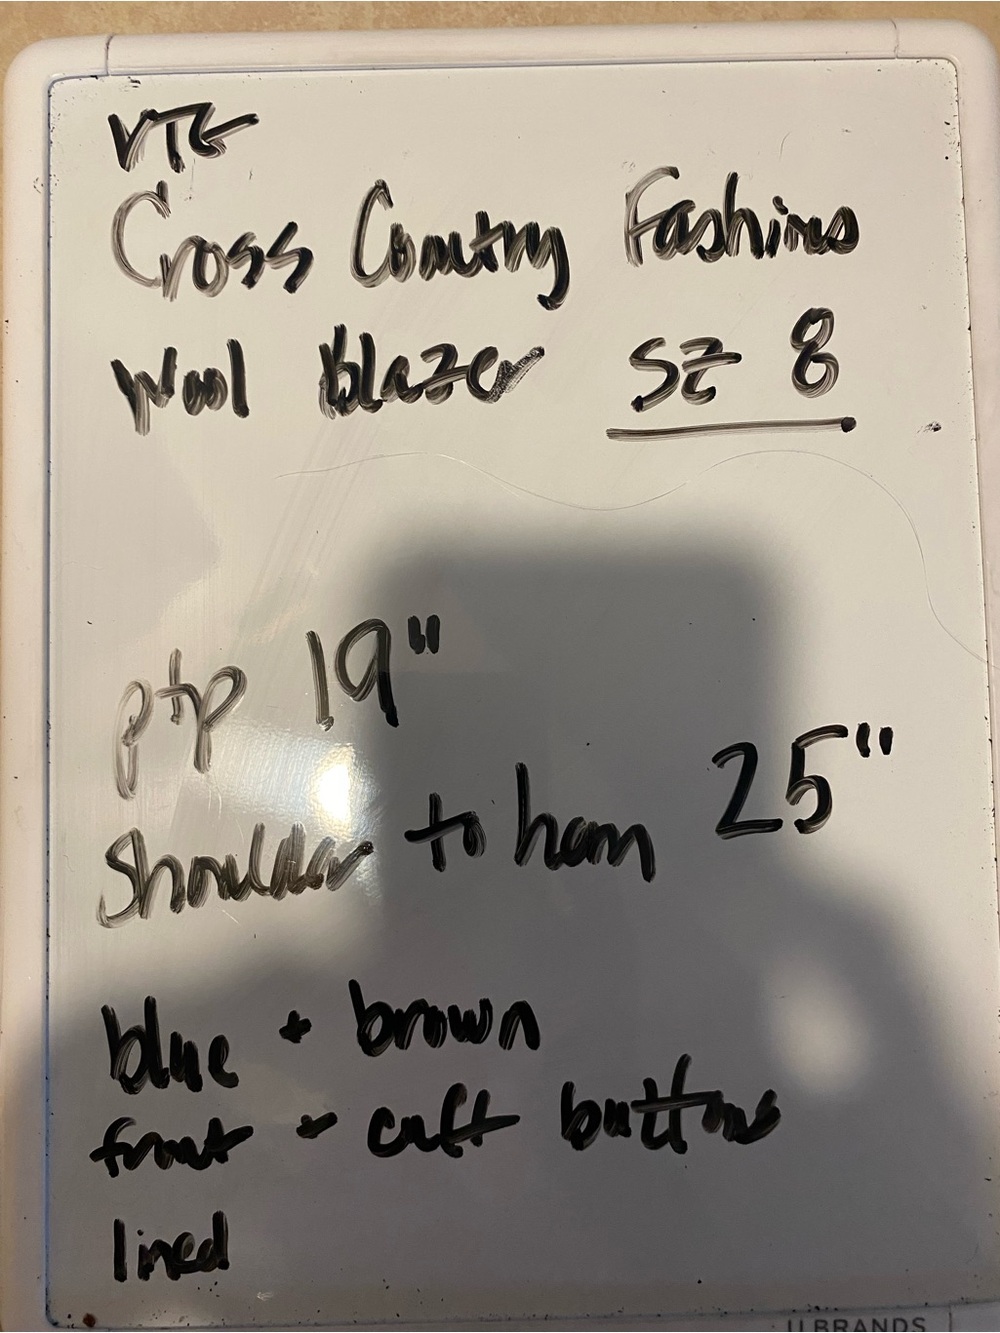 VTG
Cross Country Fashions
Wool blazer sz 8
ptp 19"
shoulder to hem 25"
blue + brown
front + cuff buttons
lined
U BRANDS